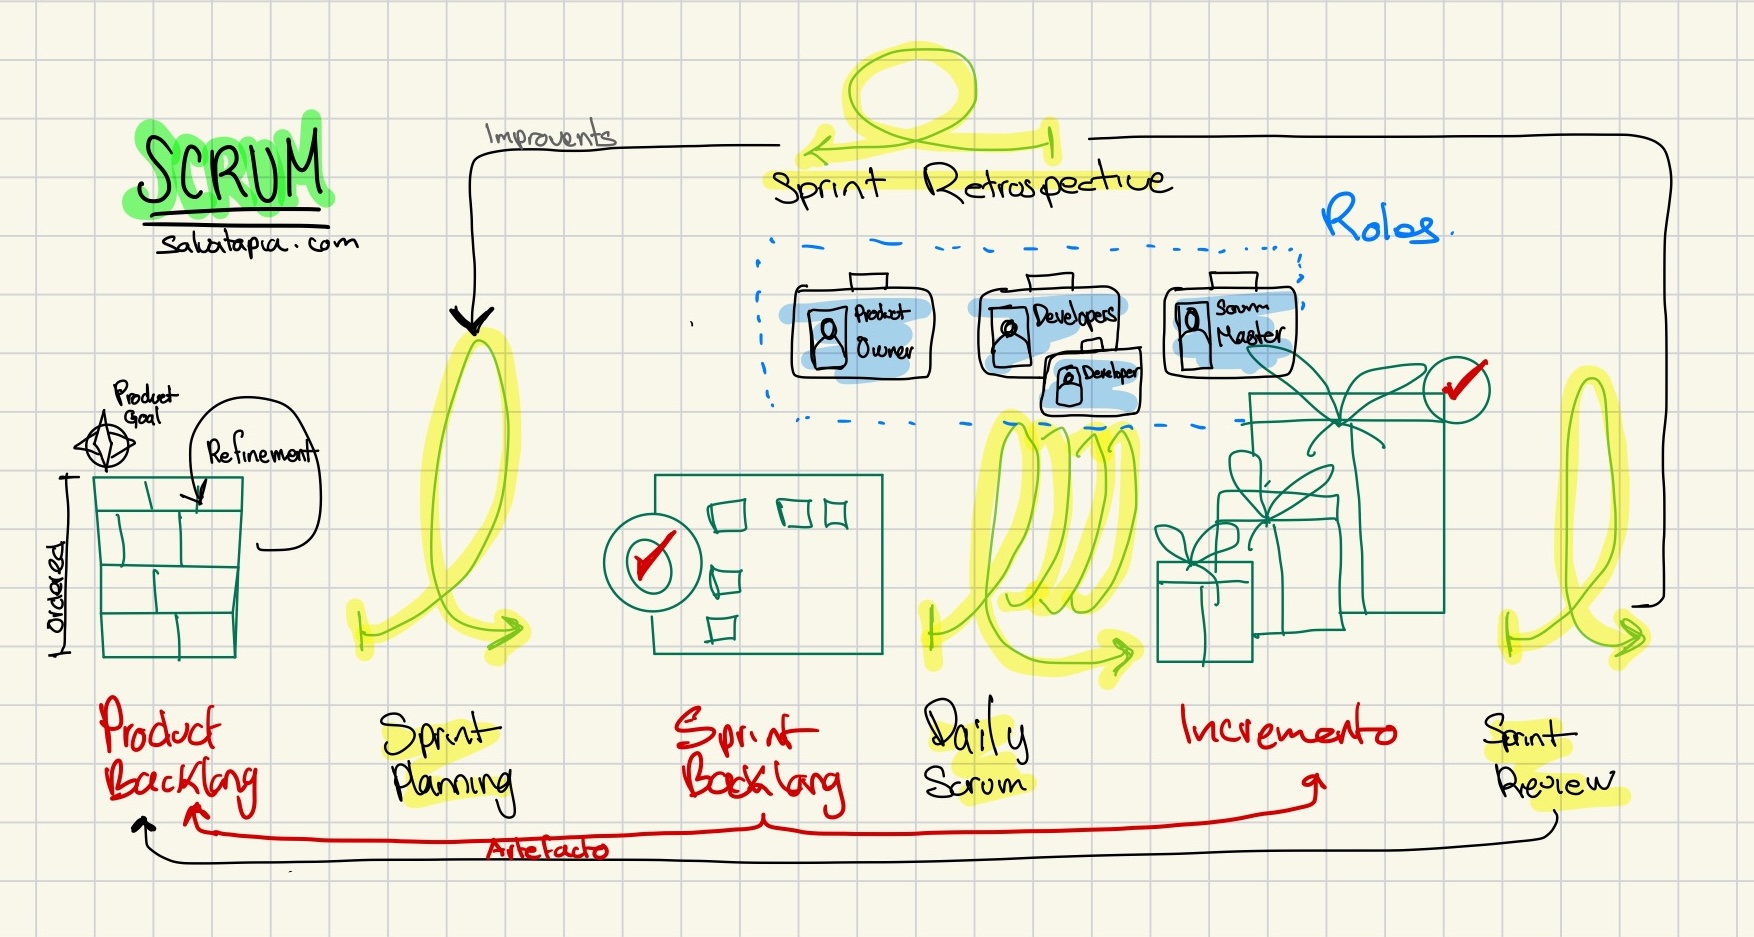 Improvents
SCRUM
salvatapia.com
Sprint Retrospective
Roles.
Product
Owner
Developers
Developer
Scrum
Master
Product
Goal
Refinement
Ordered
Product
Backlang
Sprint
Planning
Sprint
Backlang
Daily
Scrum
Incremento
Sprint
Review
Artefacto